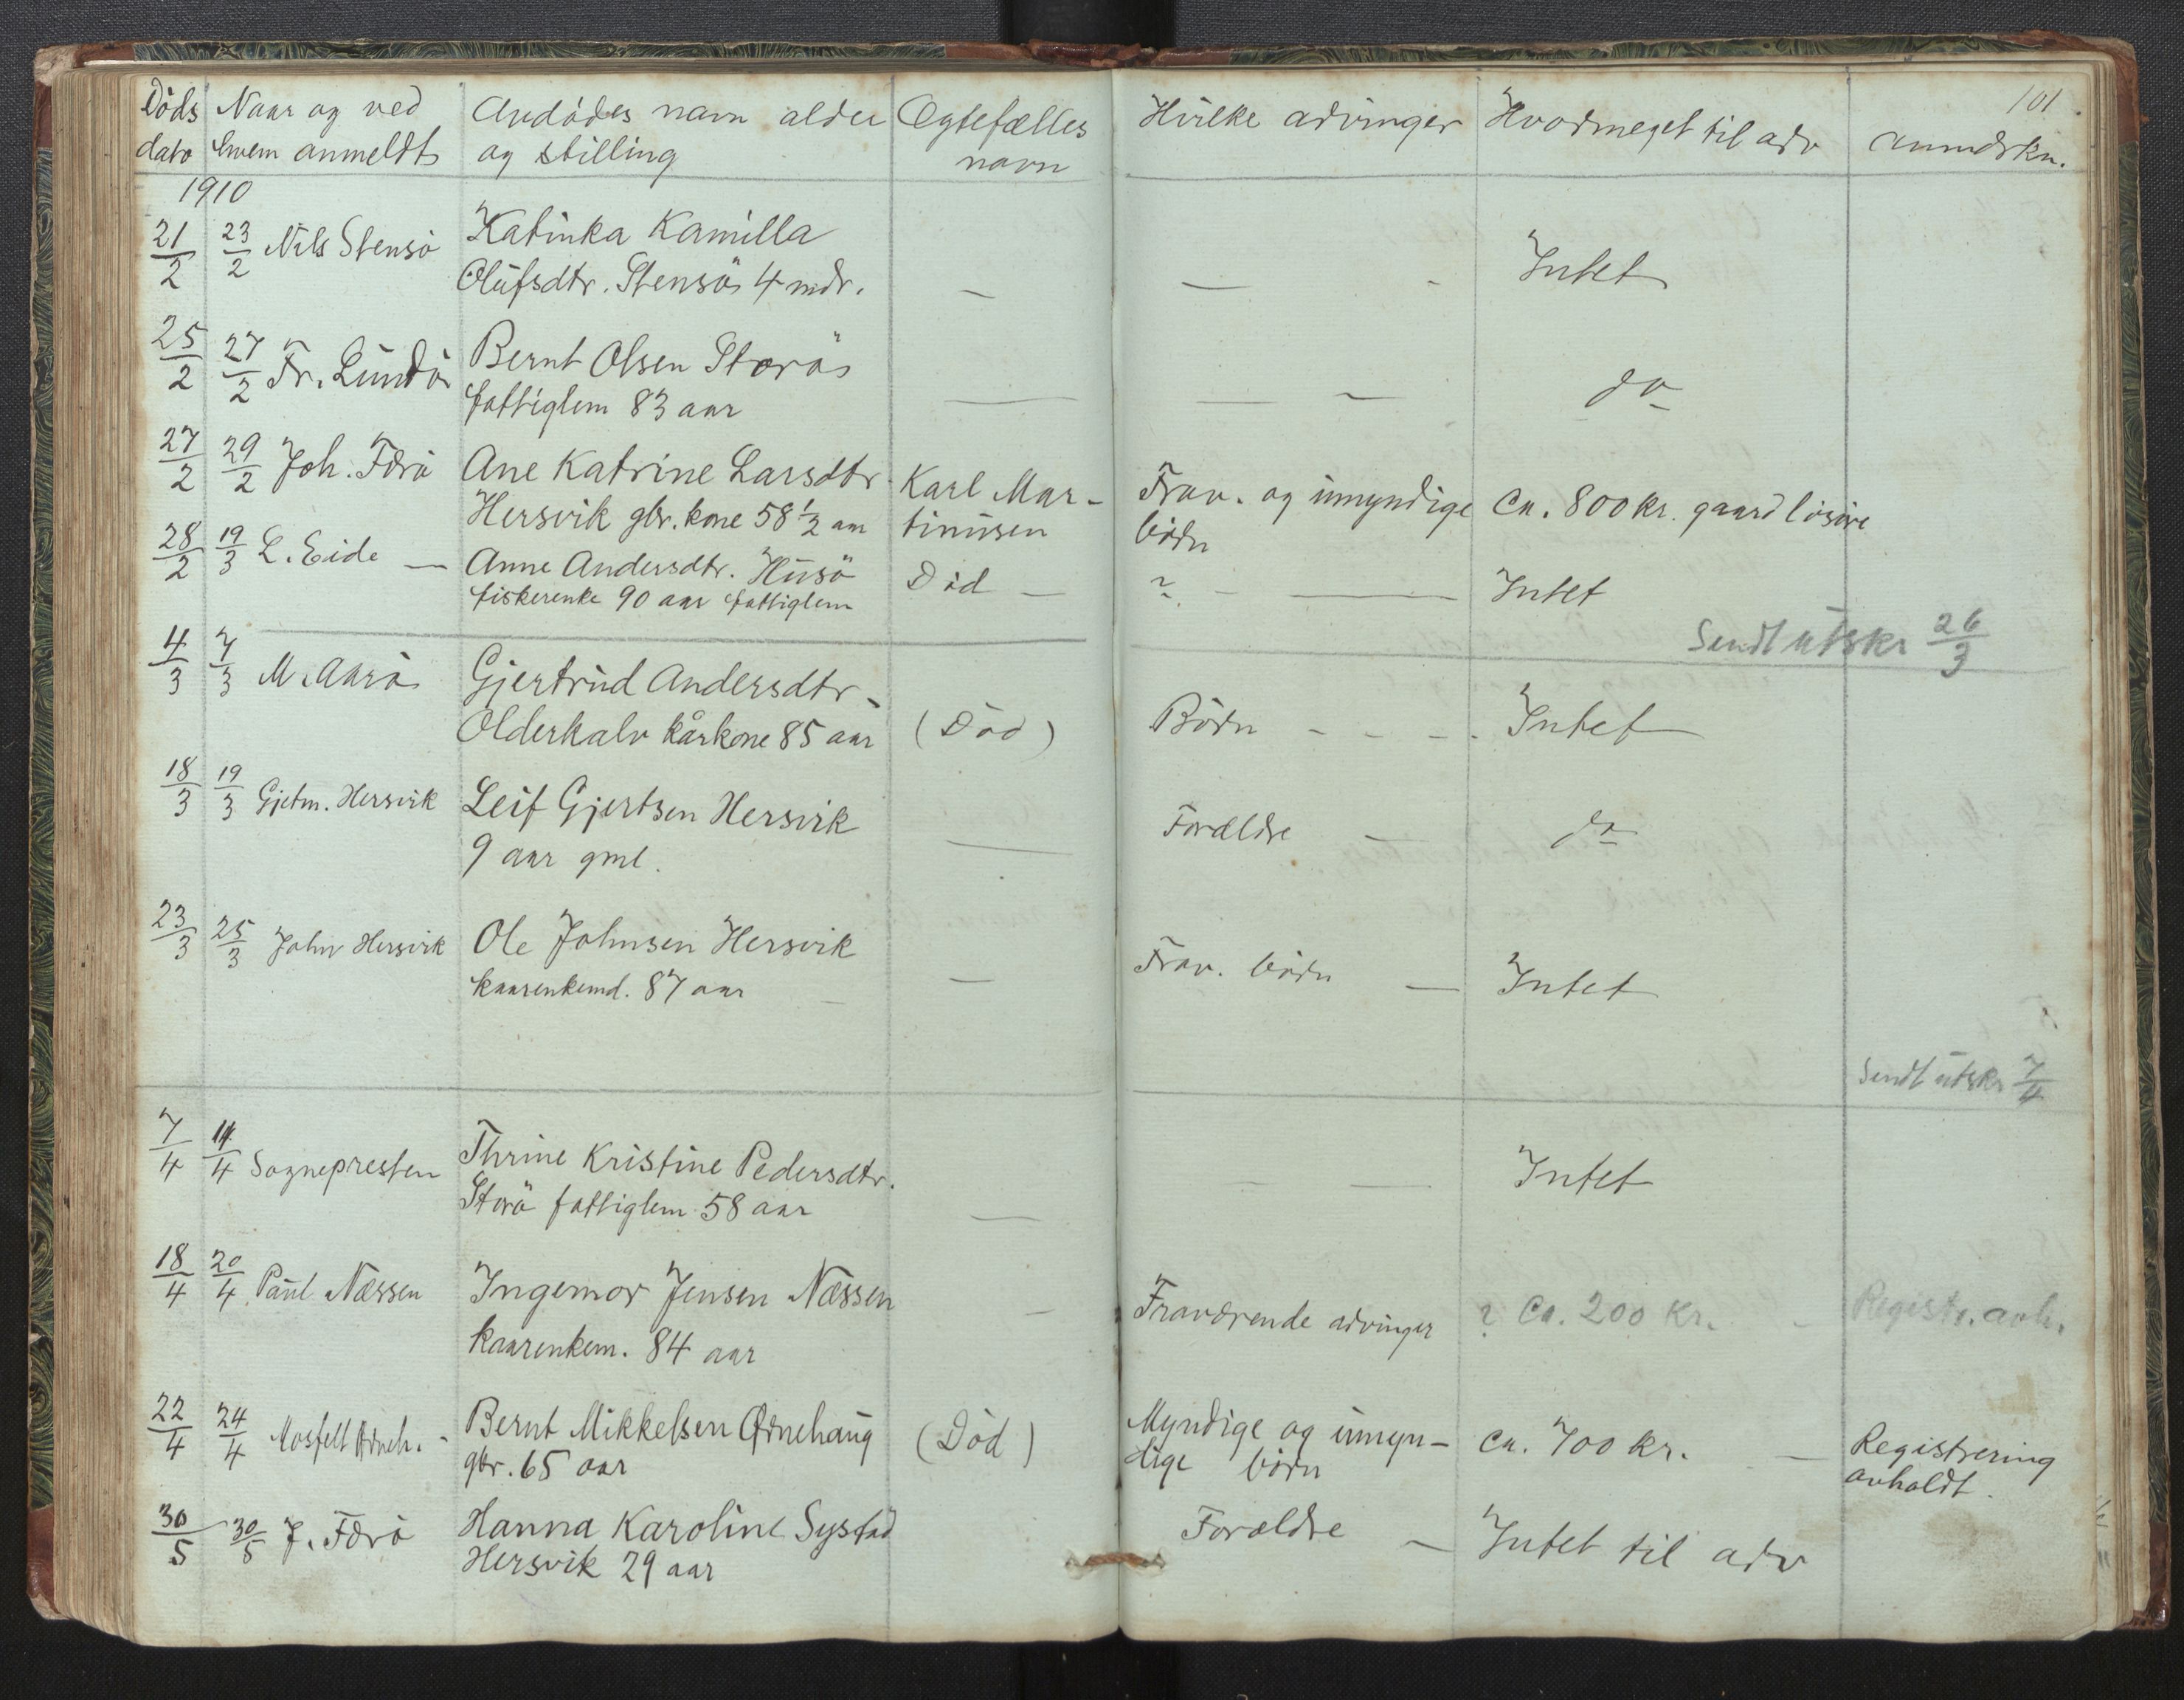 101
Døds Naar og ved Avdødes navn alder Ægtefælles Hvilke arvinger Hvormeget til arv Anmdrkn.
dato hvem anmeldt og stilling navn
1910
21/2 23/2 Nils Stensö Katinka Kamilla
Olufsdtr. Stensö 4 mdr. — — - Intet
25/2 27/2 Fr. Lundö Bernt Olsen Storö
fattiglem 83 aar — — — do
27/2 29/2 Joh. Færö Ane Katrine Larsdtr Karl Mar- Frav. og umyndige Ca. 800 kr. gaard løsöre
Hersvik gbr. kone 58 1/2 aar tinusen börn
28/2 19/3 L. Eide — Anne Andersdtr. Husö Död — ? - — Intet
fiskerenke 90 aar fattiglem
Sendt utskr 26/3
4/3 7/3 M. Aarö Gjertrud Andersdtr.
Olderkalv kårkone 85 aar (Död) Börn - - - - Intet
18/3 19/3 Gjetm. Hersvik Leif Gjertsen Hersvik
9 aar gml. — Forældre — do
23/3 25/3 John Hersvik Ole Johnsen Hersvik
kaarenkemd. 87 aar — Frav. börn — Intet
Sendt utskr 7/4
7/4 14/4 Sognepresten Thrine Kristine Pedersdtr.
Storö fattiglem 58 aar — — — Intet
18/4 20/4 Paul Næssen Ingemor Jensen Næssen — Fraværende arvinger ? Ca. 200 Kr. - Registr. avh.
kaarenkem. 84 aar
22/4 24/4 Bernt Mikkelsen Ørnehaug (Död) Myndige og umyn- ca. 700 kr. — Registrering
gbr. 65 aar dige börn avholdt.
30/5 30/5 J. Færö Hanna Karoline Systad Forældre — Intet til arv
Hersvik 29 aar